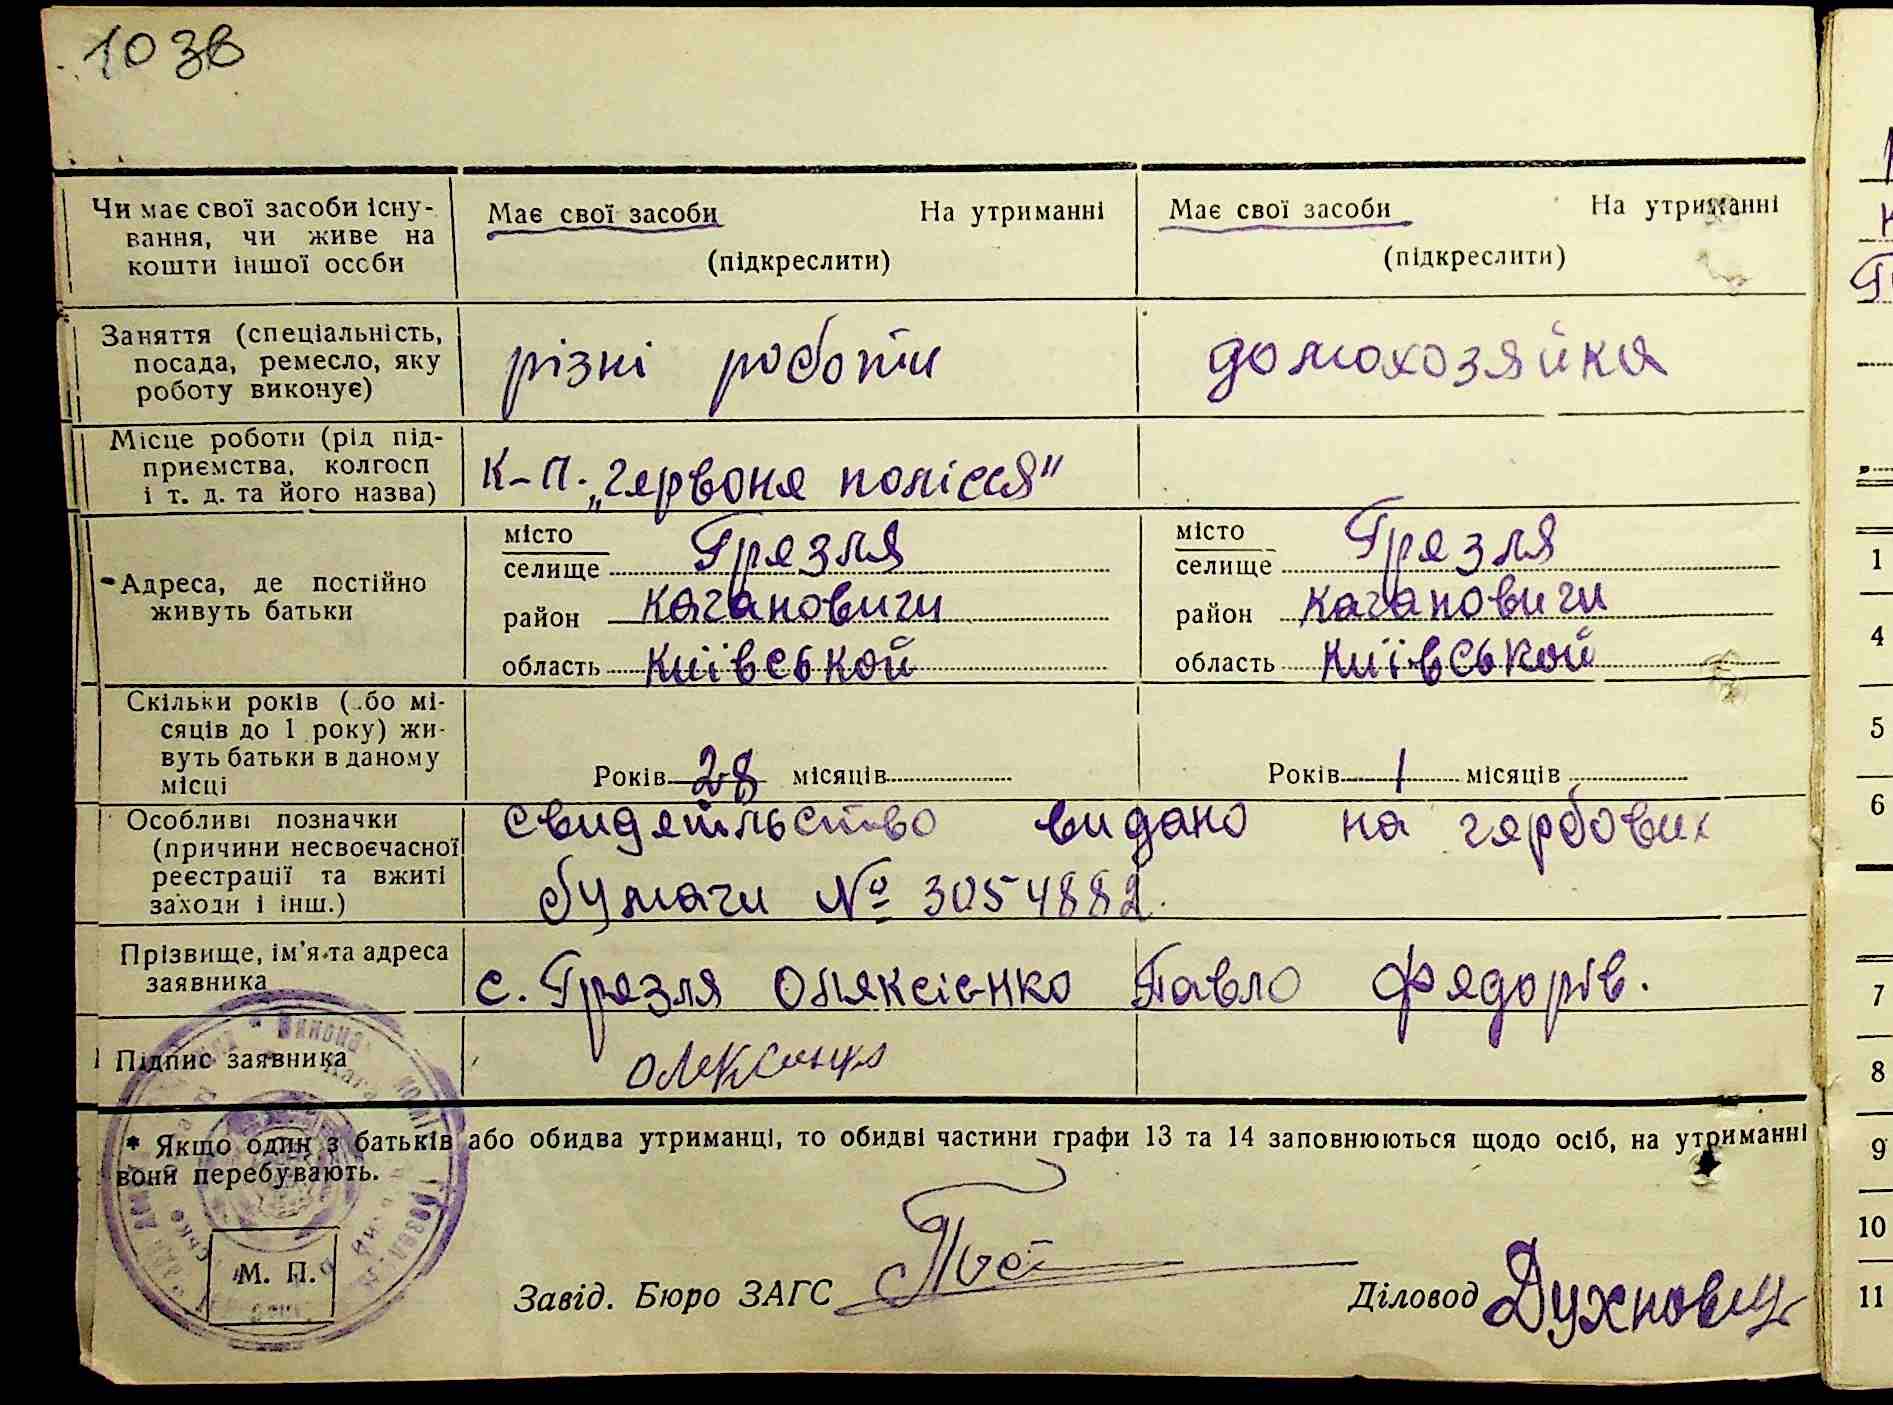 103в
Чи має свої засоби існу-
вання, чи живе на
кошти іншої особи
Має свої засоби На утриманні
(підкреслити)
Має свої засоби На утриманні
(підкреслити)
Заняття (спеціальність,
посада, ремесло, яку
роботу виконує)
різні роботи
домохозяйка
Місце роботи (рід під-
приємства, колгосп
і т. д. та його назва)
К-п. „Червоне полісся"
Адреса, де постійно
живуть батьки
місто
селище Грезля
район Кагановичи
область Київськой
місто
селище Грезля
район Кагановичи
область Київськой
Скільки років (або мі-
сяців до 1 року) жи-
вуть батьки в даному
місці
Років 28 місяців
Років 1 місяців
Особливі позначки
(причини несвоєчасної
реєстрації та вжиті
заходи і інш.)
свидетільство видано на гербових
бумаги № 3054882.
Прізвище, ім'я та адреса
заявника
с. Грезля Олексієнко Павло Федорів.
Підпис заявника
* Якщо один з батьків або обидва утриманці, то обидві частини графи 13 та 14 заповнюються щодо осіб, на утриманні
вони перебувають.
М. П.
Завід. Бюро ЗАГС
Діловод Духнович
1
4
5
6
7
8
9
10
11